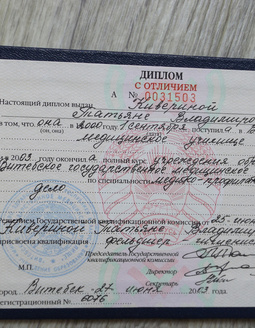 ДИПЛОМ
С ОТЛИЧИЕМ
А № 0031503
Настоящий диплом выдан Кивериной
Татьяне Владимиро
в том, что она в 2000 году 1 сентября поступила в
(он, она)
медицинское училище
в 2003 году окончила полный курс учреждения об
Витебское государственное медицинское
по специальности медико-профила
дело
решением Государственной квалификационной комиссии от 25 июн
Кивериной Татьяне Владими
присвоена квалификация фельдшер
Председатель Государственной
квалификационной комиссии
Директор
Секретарь
М.П.
Город Витебск 27 июня 2003 г.
Регистрационный № 6076